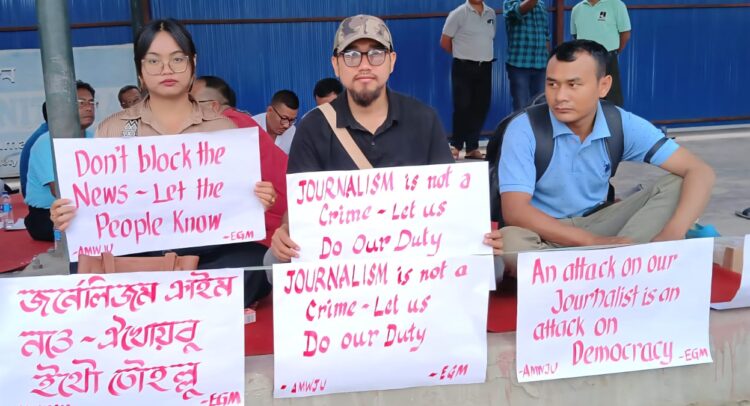 Don't block the
News - Let the
People Know
-AMWJU
-EGM
JOURNALISM is not a
Crime - Let us
Do Our Duty
জর্নেলিজম ক্রাইম
নত্তে - ঐখোয়বু
ইথৌ তৌহল্লু
EGM
JOURNALISM is not a
Crime - Let us
Do Our Duty
-AMWJU
-EGM
An attack on our
Journalist is an
attack on
Democracy
-AMWJU
-EGM